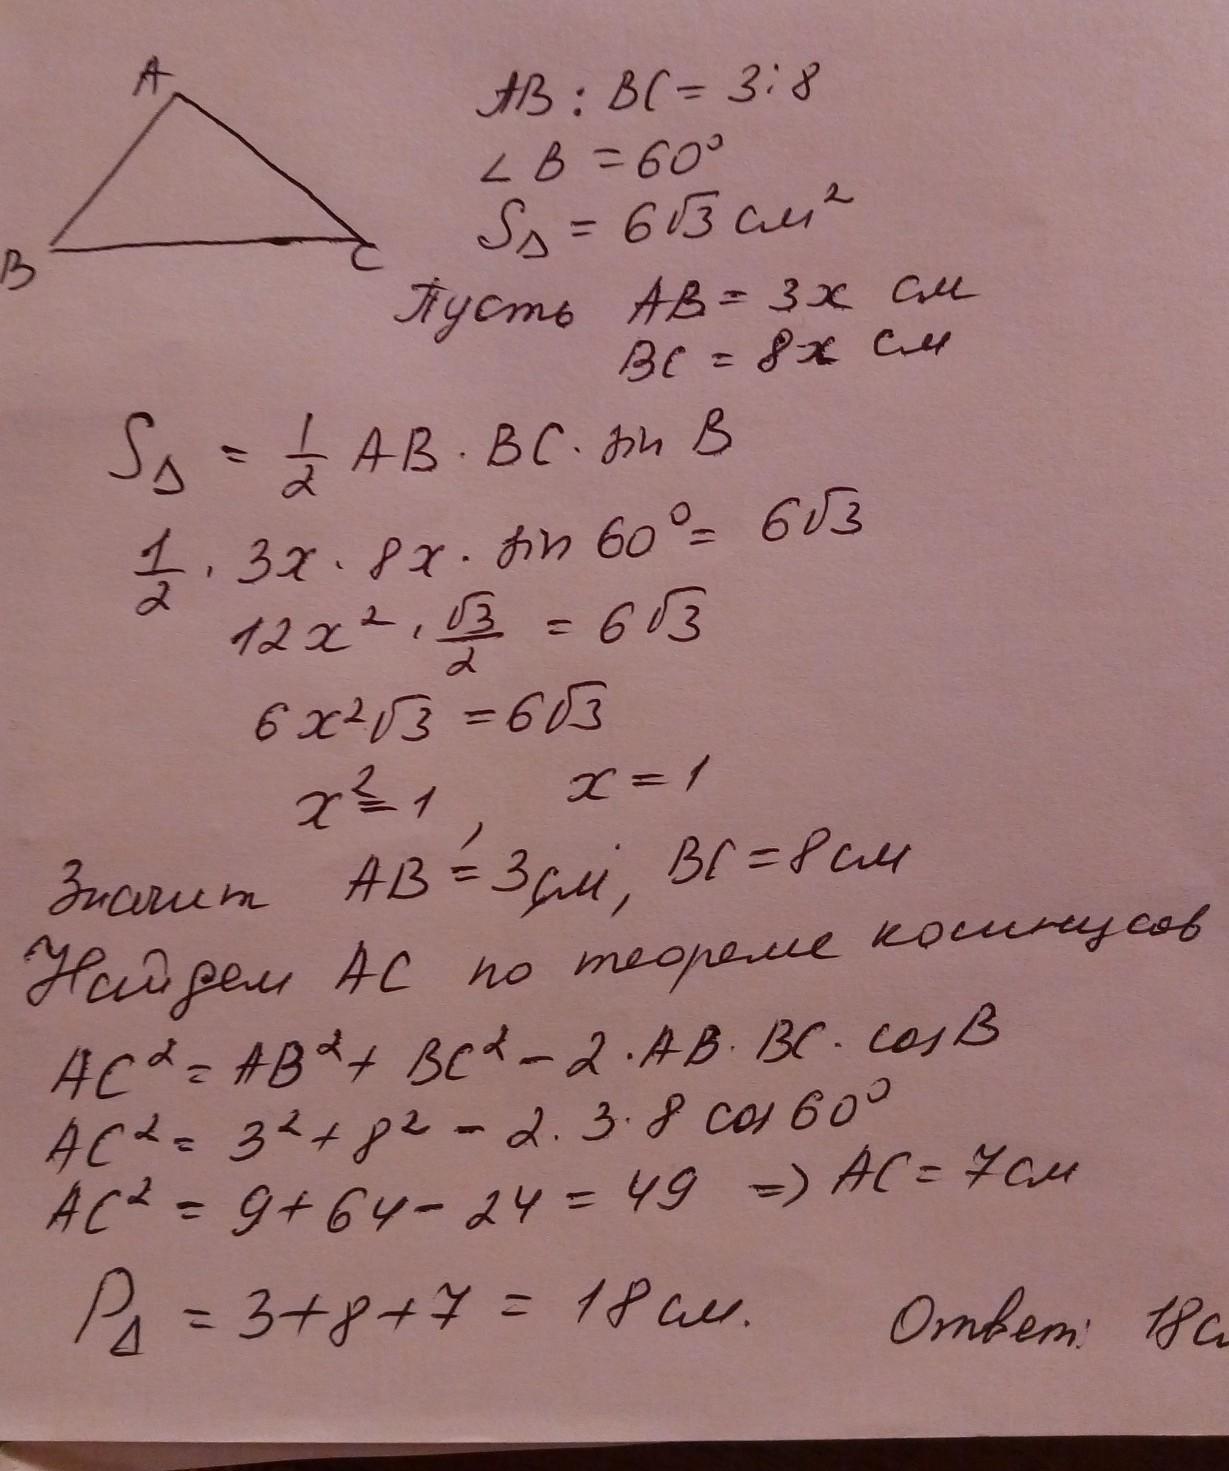 A
B
C
AB : BC = 3:8
∠B = 60°
S△ = 6√3 см²
Пусть AB = 3x см
BC = 8x см
S△ = 1/2 AB · BC · sin B
1/2 · 3x · 8x · sin 60° = 6√3
12x² · √3/2 = 6√3
6x²√3 = 6√3
x² = 1, x = 1
Значит AB = 3см, BC = 8см
Найдем AC по теореме косинусов
AC² = AB² + BC² - 2 · AB · BC · cos B
AC² = 3² + 8² - 2 · 3 · 8 cos 60°
AC² = 9 + 64 - 24 = 49 => AC = 7см
P△ = 3+8+7 = 18см. Ответ: 18с